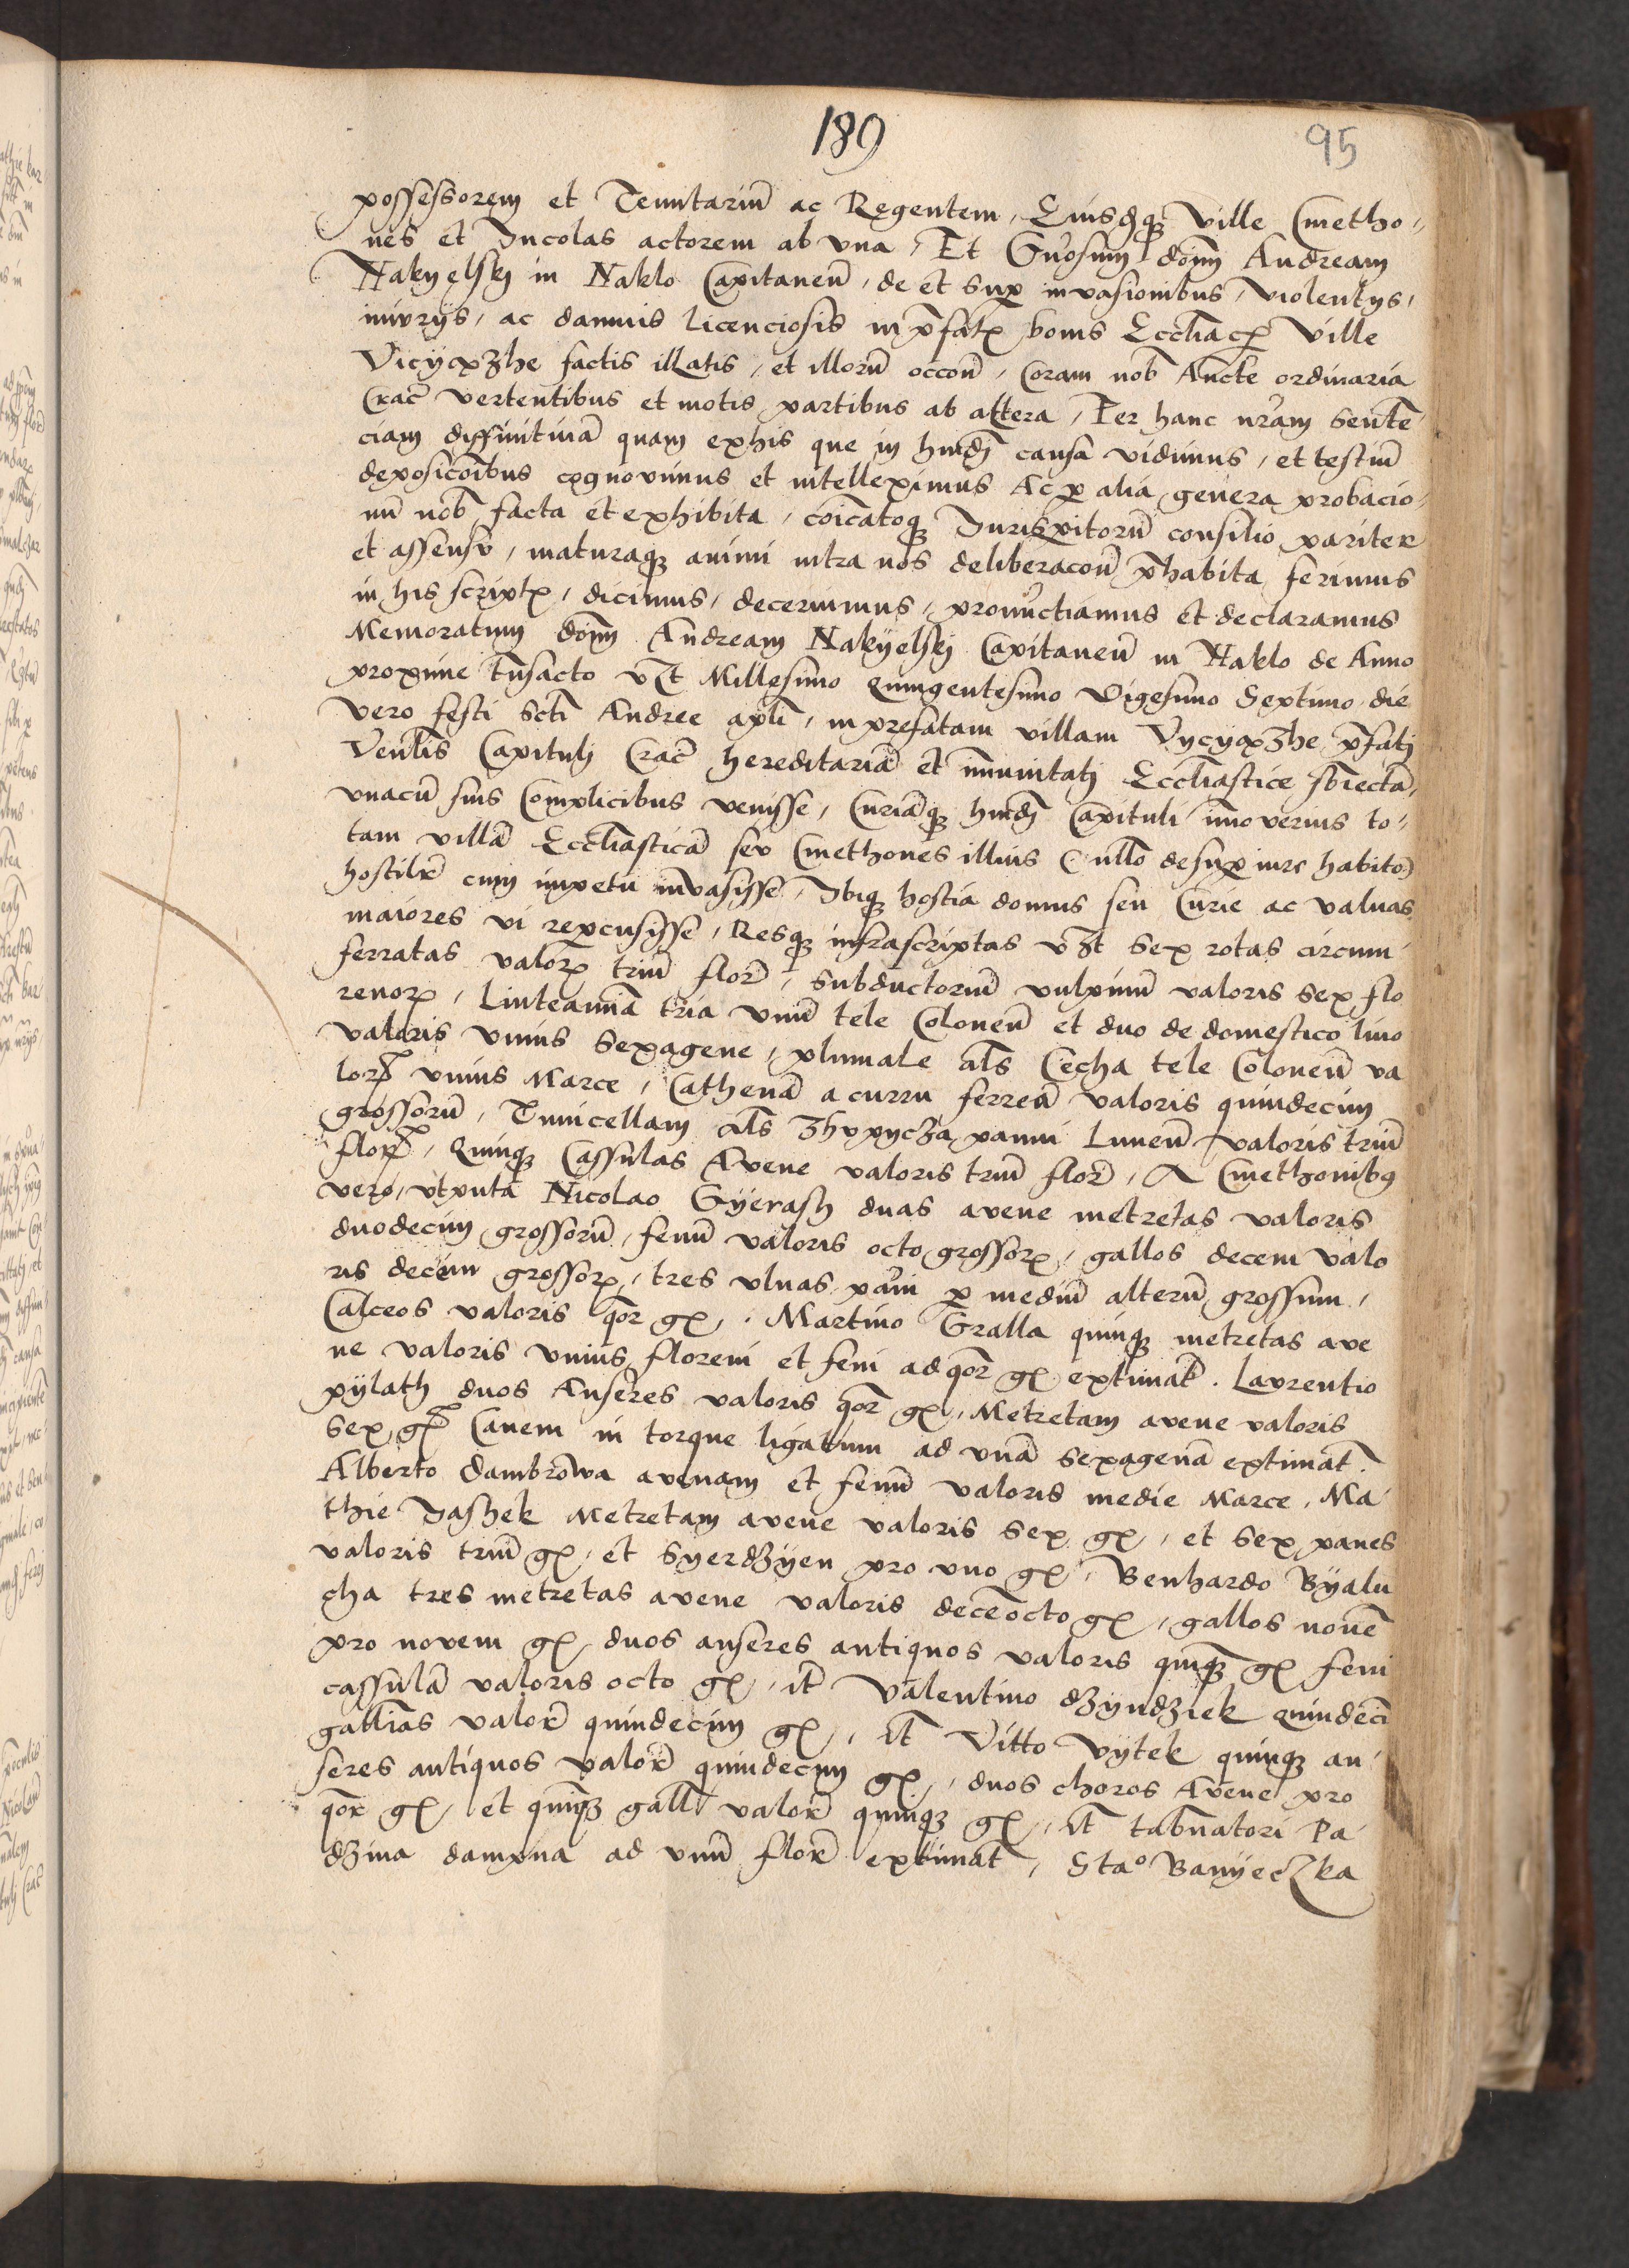 189
95
possessorem et Tenutariũ ac Regentem, Eiusdqꝫ Ville Cmetho-
nes et Incolas actorem ab vna, Et Gn̄osum dōm Andream
Nakyelskj in Naklo Capitaneũ, de et sup̱ invasionibus, violentijs,
iniurijs, ac damnis licenciosis in p̄fatꝭ bonis Ecclīacꝭ Ville
Vicyąpzhe factis illatis, et illorũ occōn, Coram nob̄ Auc̄te ordinaria
Crac̄ vertentibus et motis partibus ab altera, Per hanc nr̄am senten̄
ciam diffinitiuā quam exhis que in hm̄dj causa vidimus, et testiũ
deposicōibus cognouimus et intelleximus Ac p̱ alia genera probacio-
nũ nob̄ facta et exhibita, cōicatoqꝫ Iurispitorũ consilio pariter
et assensu, maturaqꝫ animi intra nos deliberacōn p̄habita ferimus
in his scriptꝭ, dicimus, decernimus, pronũctiamus et declaramus
Memoratum dōm Andream Nakyelskj Capitaneũ in Naklo de Anno
proxime trn̄sacto vꝫt Millesimo Quingentesimo Vigesimo Septimo die
vero festi Sctī Andree apl̄i, in prefatam villam Vycyąpzhe p̄fatj
Ven̄lis Capitulj Crac̄ hereditariā et im̄unitatj Ecclīastice sb̄iectā,
vnacũ suis Complicibus venisse, Curiāqꝫ hm̄dj Capituli imo verius to-
tam villā Ecclīasticā seu Cmethones illius (nullo desup̱ iure habito)
hostilr̄ cum impetu invasisse, Ibiqꝫ hostia domus seu Curie ac valuas
maiores vi repcusisse, Resqꝫ infrascriptas vꝫt sex rotas circum
ferratas valorꝭ triũ flor̄, Subductoriũ vulpinũ valoris sex flo
renorꝝ, Linteamia tria vnũ tele Coloneñ et duo de domestico lino
valoris vnius Sexagene, plumale al̄s Cecha tele Coloneñ va
lorꝭ vnius Marce, Cathenā a curru ferreā valoris quindecim
grossorũ, Tunicellam al̄s Zhvpycza panni Luneñ valoris triũ
florꝭ, Quinqꝫ Cassulas Avene valoris triũ flor̄, A Cmethonibꝰ
vero, vtputa Nicolao Gyerash duas avene metretas valoris
duodecim grossorũ, fenũ valoris octo grossorꝝ, gallos decem valo
ris decem grossorꝝ, tres vlnas pān̄i p̱ mediũ alterũ grossum,
Calceos valoris qr̄or gꝭ, Martino Gralla quinqꝫ metretas ave
ne valoris vnius floreni et feni ad qr̄or gꝭ extimat̄. Laurentio
pylath duos Anseres valoris qr̄or gꝭ, Metretam avene valoris
Sex gꝭ Canem in torque ligatum ad vnā sexagenā extimat̄.
Alberto dambrowa avenam et fenũ valoris medie Marce, Ma
thie Jashek Metretam avene valoris Sex gꝭ, et Sex panes
valoris triũ gꝭ, et Syerdzyen pro vno gꝭ, Benhardo Byalu
cha tres metretas avene valoris decēocto gꝭ, gallos nouē
pro novem gꝭ, duos anseres antiquos valoris quīqꝫ gꝭ feni
cassulā valoris octo gꝭ, it̄ Valentino dzyndziek quindecī
gallinas valor̄ quindecim gꝭ, it̄ Vitto Vytek quinqꝫ an
seres antiquos valor̄ quindecim gꝭ, duos choros Avene pro
qr̄or gꝭ, et quīqꝫ gall̄ valor̄ quinqꝫ gꝭ, it̄ tab̄natori Pa
dzina dampna ad vnũ flor̄ extimat̄, Staᵒ Banyeczka